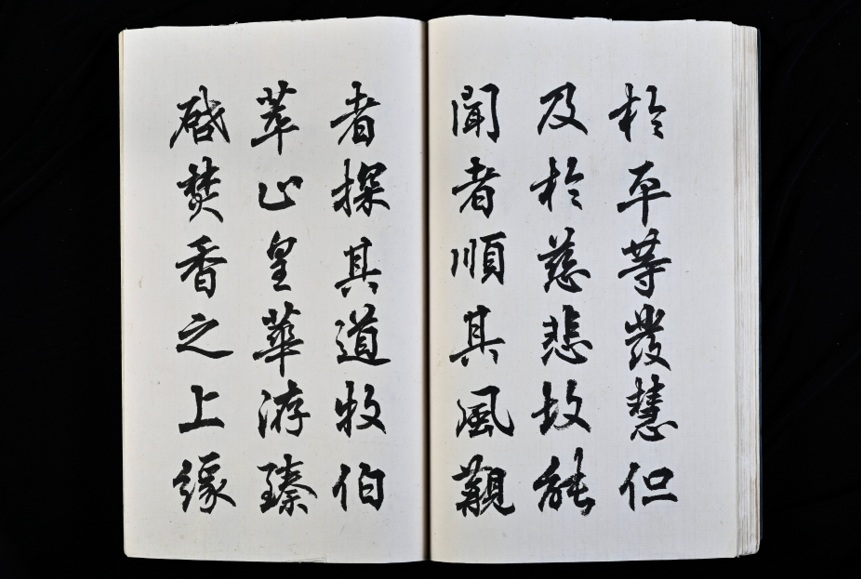 於平等發慧但
及於慈悲故能
聞者順其風觀
者探其道牧伯
萃止皇華洊臻
啟焚香之上緣